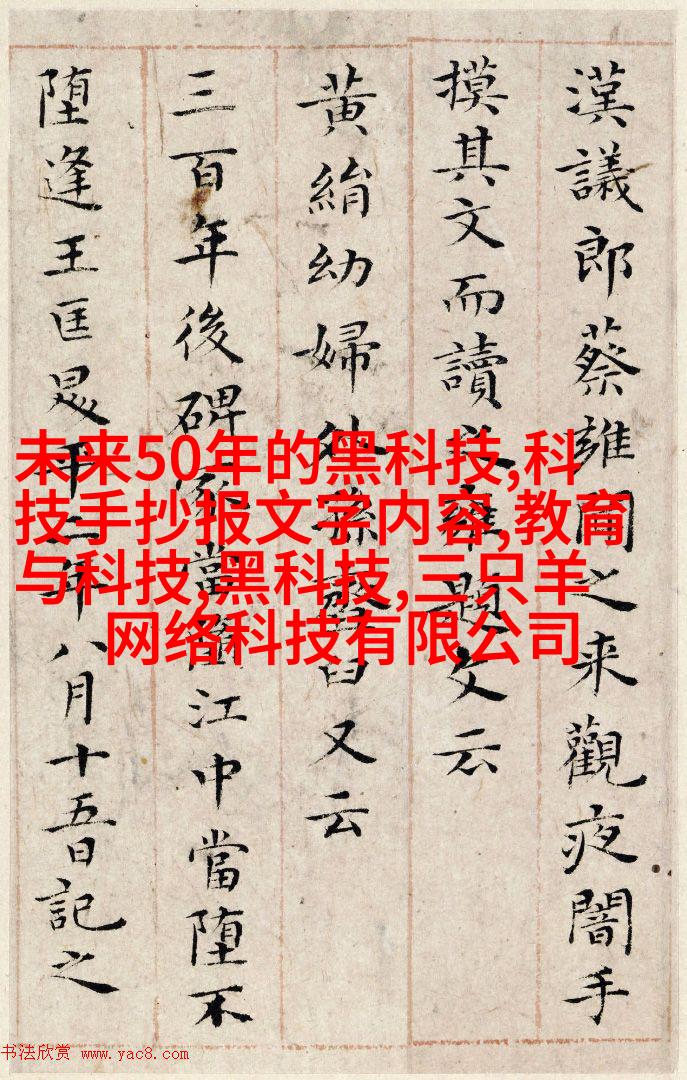 漢議郎蔡雍聞之来觀夜闇手
摸其文而讀之雍題文云
黄絹幼婦外孫臼又云
三百年後碑冢當堕江中當堕不
堕逢王匡平二年八月十五日記之
未来50年的黑科技,科
技手抄报文字内容,教育
与科技,黑科技,三只羊
网络科技有限公司
书法欣赏 www.yac8.com